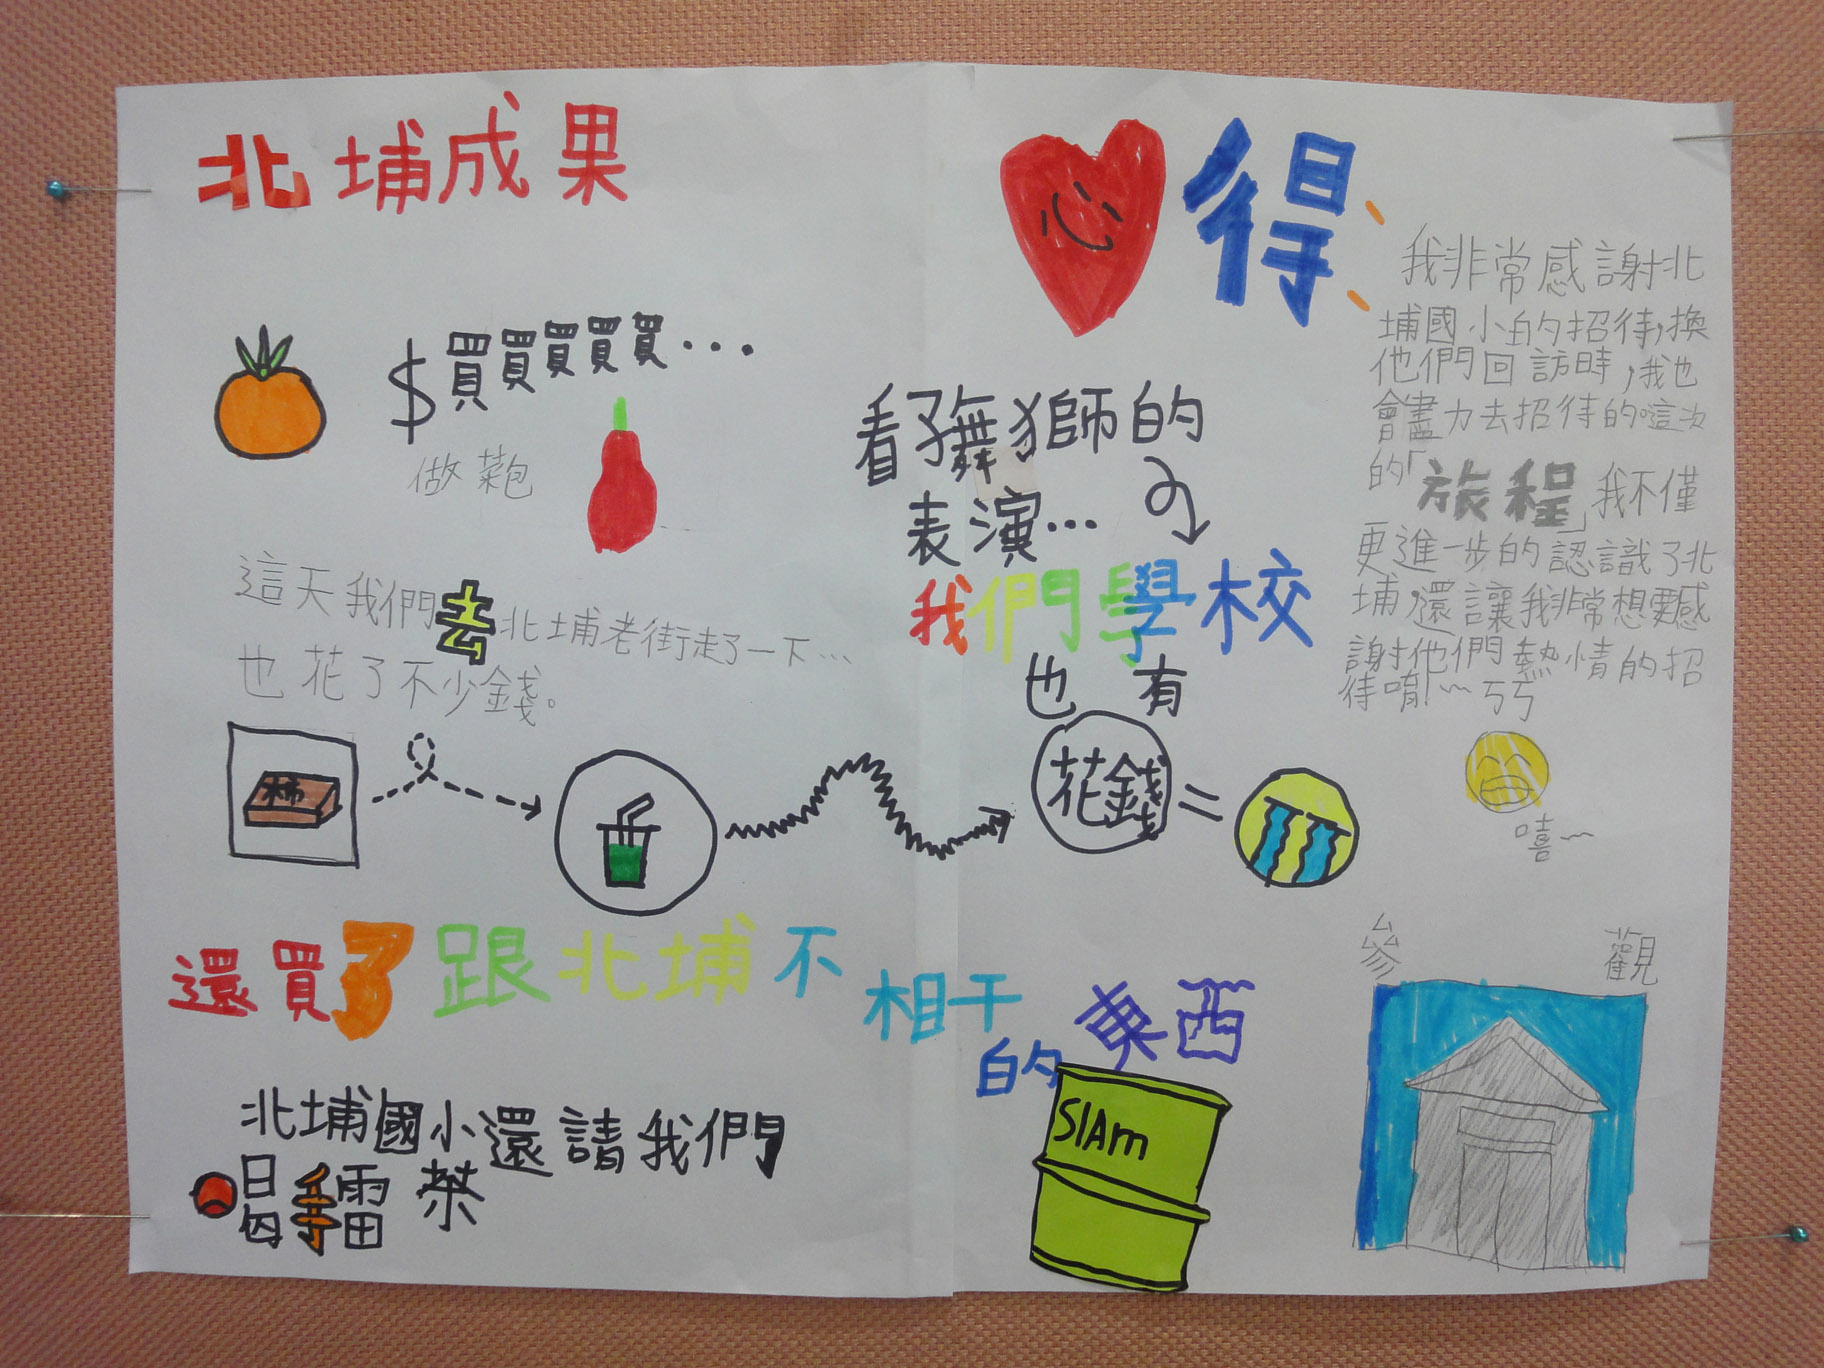 北埔成果
$買買買買買...
做菜包
這天我們去北埔老街走了一下...
也花了不少錢。
柿
還買了跟北埔不相干的東西
SIAm
北埔國小還請我們
喝擂茶
心得
看了舞獅的
表演...
我們學校
也有
花錢=
我非常感謝北
埔國小的招待,換
他們回訪時,我也
會盡力去招待的。這次
的「旅程」我不僅
更進一步的認識了北
埔,還讓我非常想要感
謝他們熱情的招
待唷!~ㄎㄎ
嘻~
參觀